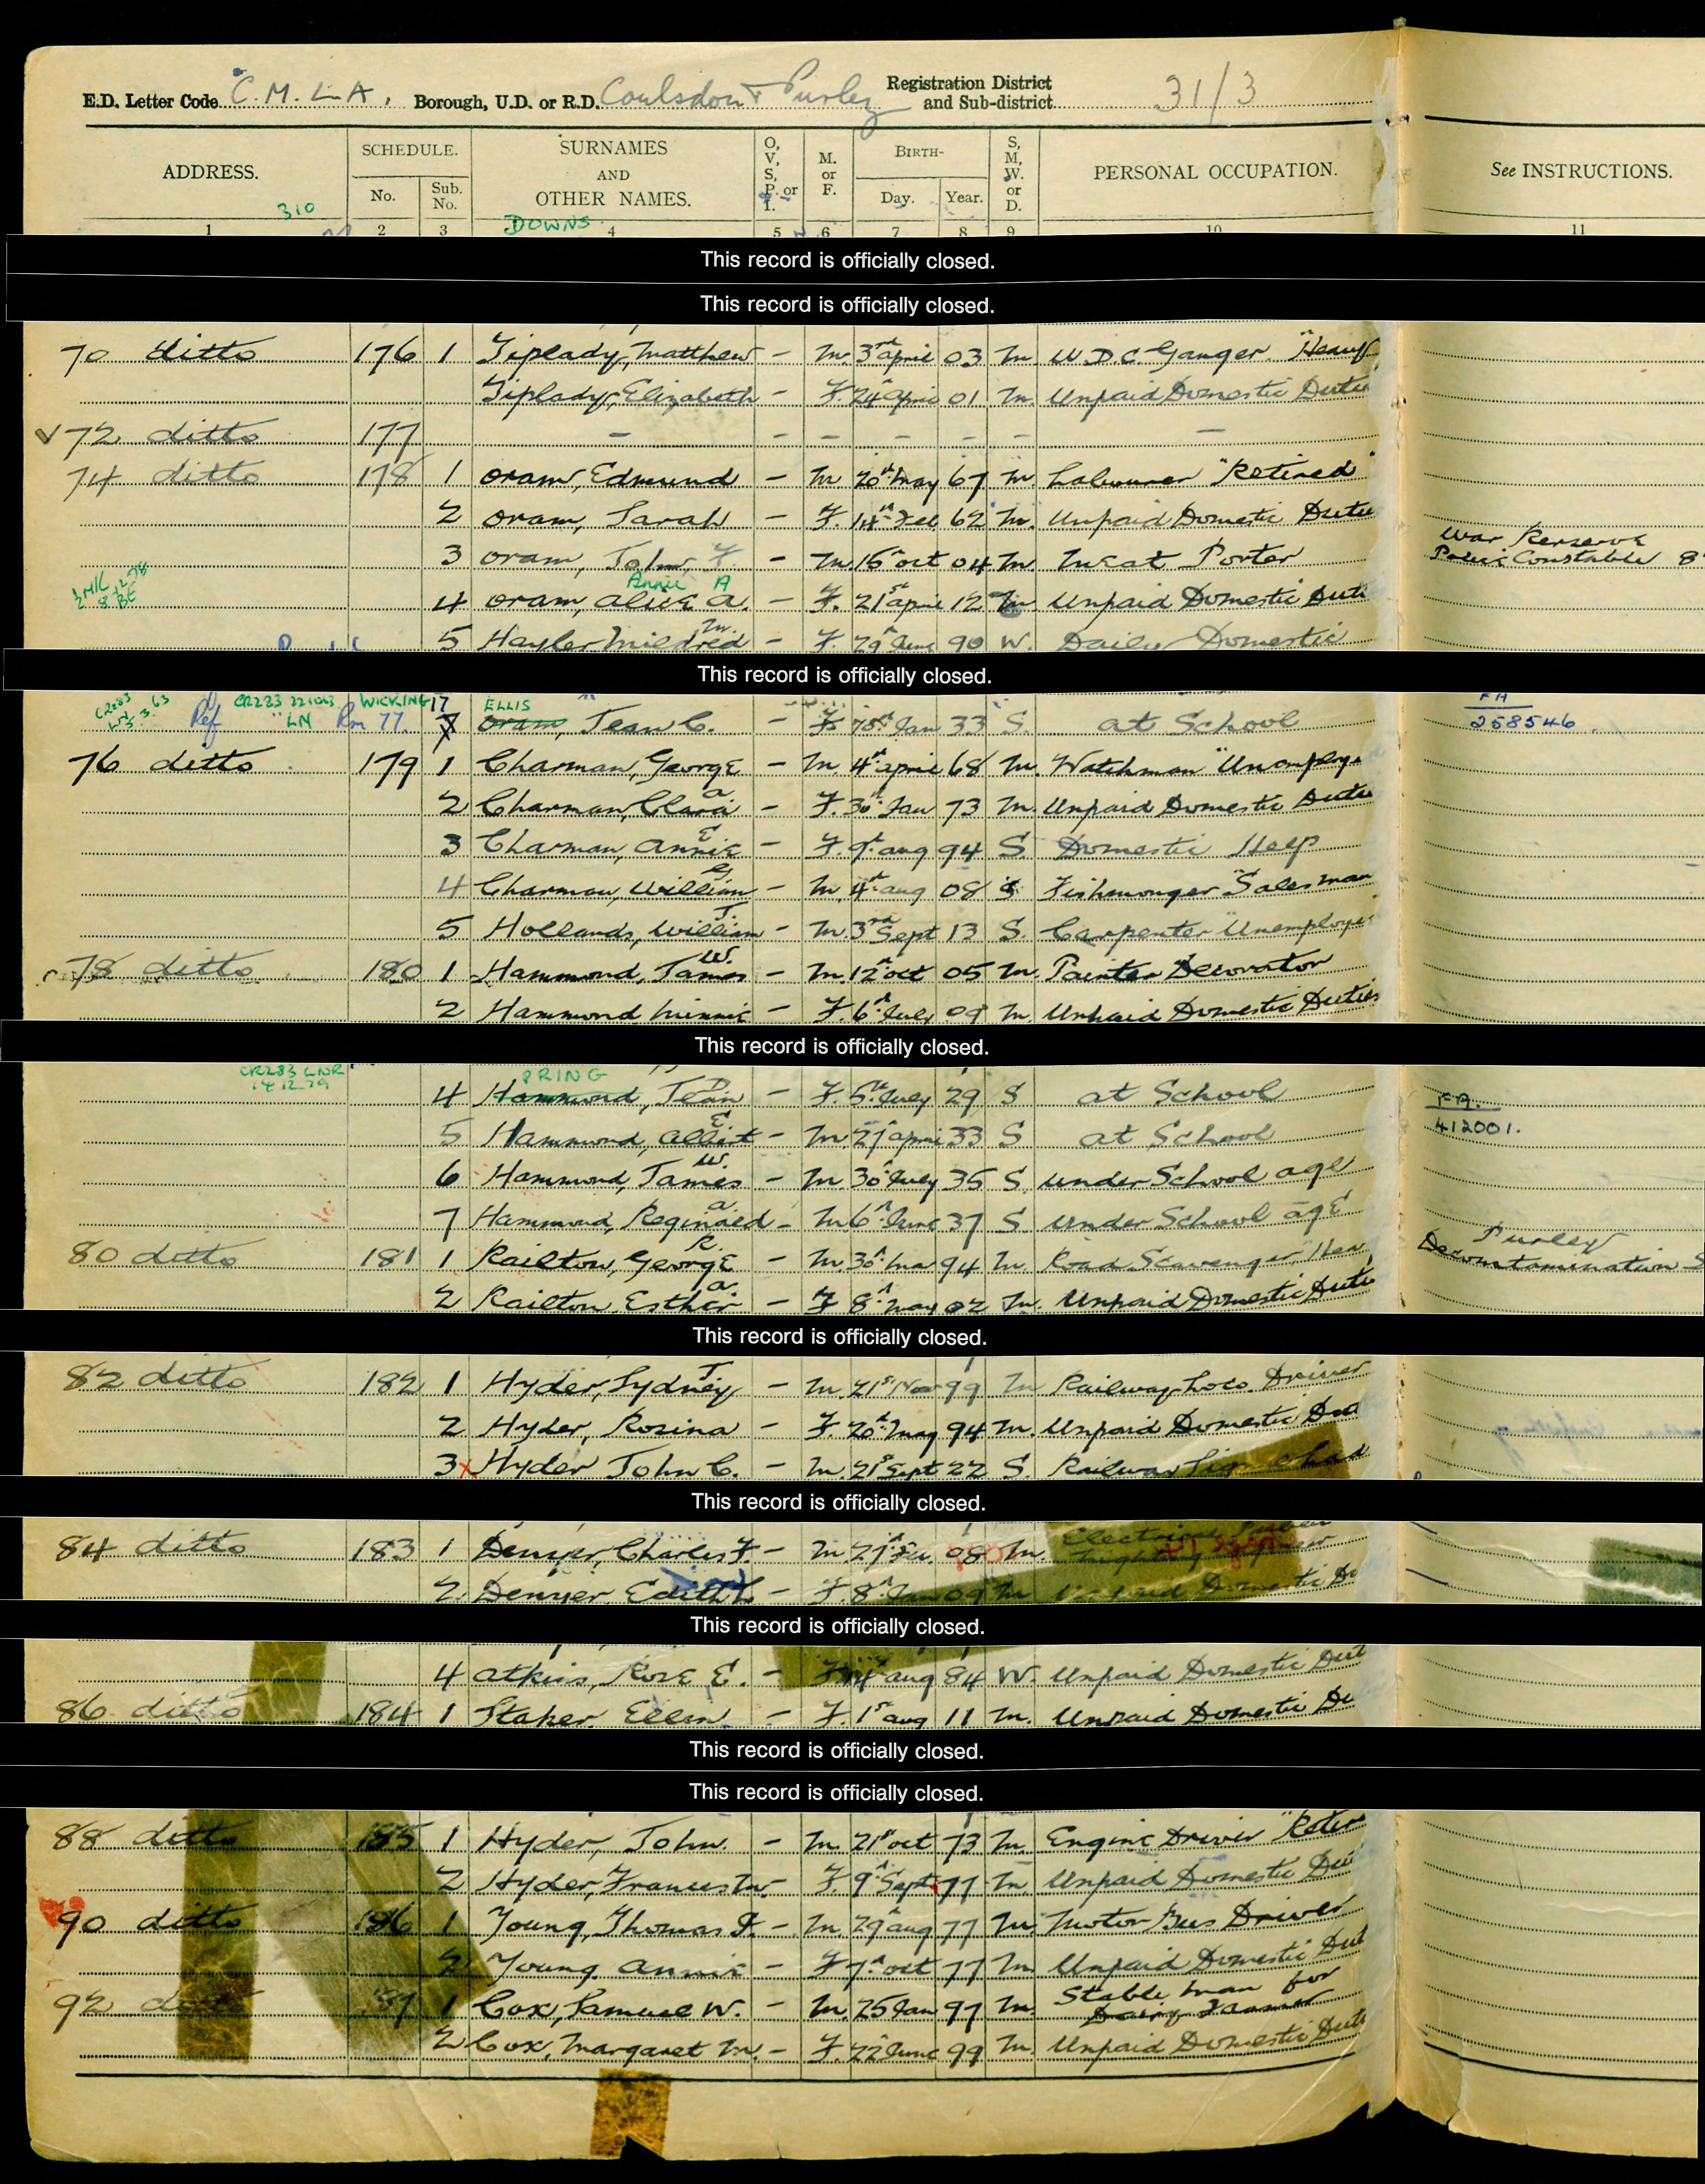 E.D. Letter Code C.M.L.A. Borough, U.D. or R.D. Coulsdon & Purley Registration District and Sub-district 31/3
ADDRESS. SCHEDULE. No. Sub. No. SURNAMES AND OTHER NAMES. O, V, S, P. or I. M. or F. BIRTH- Day. Year. S, M, W. or D. PERSONAL OCCUPATION. See INSTRUCTIONS.
310 DOWNS
1 2 3 4 5 6 7 8 9 10 11
This record is officially closed.
This record is officially closed.
70 ditto 176 1 Tiplady, Matthew - M. 3rd April 03 M. W.D.C. Ganger "Heavy
Tiplady, Elizabeth - F. 24 April 01 M. Unpaid Domestic Duties
72 ditto 177 - - - - - - -
74 ditto 178 1 Oram, Edmund - M 20th May 67 M. Labourer "Retired"
2 Oram, Sarah - F. 14th Feb 62 M. Unpaid Domestic Duties
3 Oram, John F. - M. 15th Oct 04 M. Meat Porter War Reserve Police Constable 8
Annie A
4 Oram, Alice A. - F. 21st April 12 M Unpaid Domestic Duti
5 Hayler Mildred M. - F. 29th June 90 W. Daily Domestic
This record is officially closed.
CR283 LN 3.3.63 Ref CR283 221063 LN Rm 77. WICKING 17 ELLIS
7 Oram, Jean C. - F Jan 33 S. at School FA 258546
76 ditto 179 1 Charman, George - M. 4th April 68 M. Watchman "Unemploy
2 Charman, Clara A. - F. 30th Jan 73 M. Unpaid Domestic Duties
3 Charman, Annie E - F. 9th Aug 94 S. Domestic Help
4 Charman, William G - M. 4th Aug 08 S Fishmonger Salesman
5 Hollands, William J. - M. 3rd Sept 13 S. Carpenter "Unemploye
78 ditto 180 1 Hammond, James W. - M. 12th Oct 05 M. Painter Decorator
2 Hammond Minnie - F. 6th July 09 M. Unpaid Domestic Duties
This record is officially closed.
CR283 LNR 14.12.79 PRING
4 Hammond, Jean D - F. 5th July 29 S at School FA. 412001.
5 Hammond, Albert E - M. 27th April 33 S at School
6 Hammond, James W. - M. 30th July 35 S under School age
7 Hammond, Reginald A. - M 6th June 37 S under School age
80 ditto 181 1 Railton, George R. - M. 30th Ma 94 M. Road Scavenger "Hea Purley Decontamination S
2 Railton, Esther A. - F 8th May 02 M. Unpaid Domestic Duti
This record is officially closed.
82 ditto 182 1 Hyder, Sydney J - M. 21st Nov 99 M Railway Loco. Driver
2 Hyder, Rosina - F. 20th May 94 M. Unpaid Domestic Dut
3 Hyder John C. - M. 21st Sept 22 S. Railway Signal Lad
This record is officially closed.
84 ditto 183 1 Denyer, Charles F. - M 27th Feb. 08 M. Electrical
2 Denyer Edith L - F. 8th Jan 09 M Unpaid Domestic Du
This record is officially closed.
4 Atkins, Rose E. - F 14th Aug 84 W. Unpaid Domestic Dut
86 ditto 184 1 Staker Ellen - F. 1st Aug 11 M. Unpaid Domestic Du
This record is officially closed.
This record is officially closed.
88 ditto 185 1 Hyder, John. - M. 21st Oct 73 M. Engine Driver "Retir
2 Hyder, Frances M. - F. 9th Sept 77 M. Unpaid Domestic Dut
90 ditto 186 1 Young, Thomas F. - M. 29th Aug 77 M. Motor Bus Driver
2 Young Annie - F 7th Oct 77 M Unpaid Domestic Dut
92 ditto 187 1 Cox, Samuel W. - M. 25 Jan 97 M. Stable Man for Dairy Farmer
2 Cox, Margaret M. - F. 22 June 99 M. Unpaid Domestic Duti